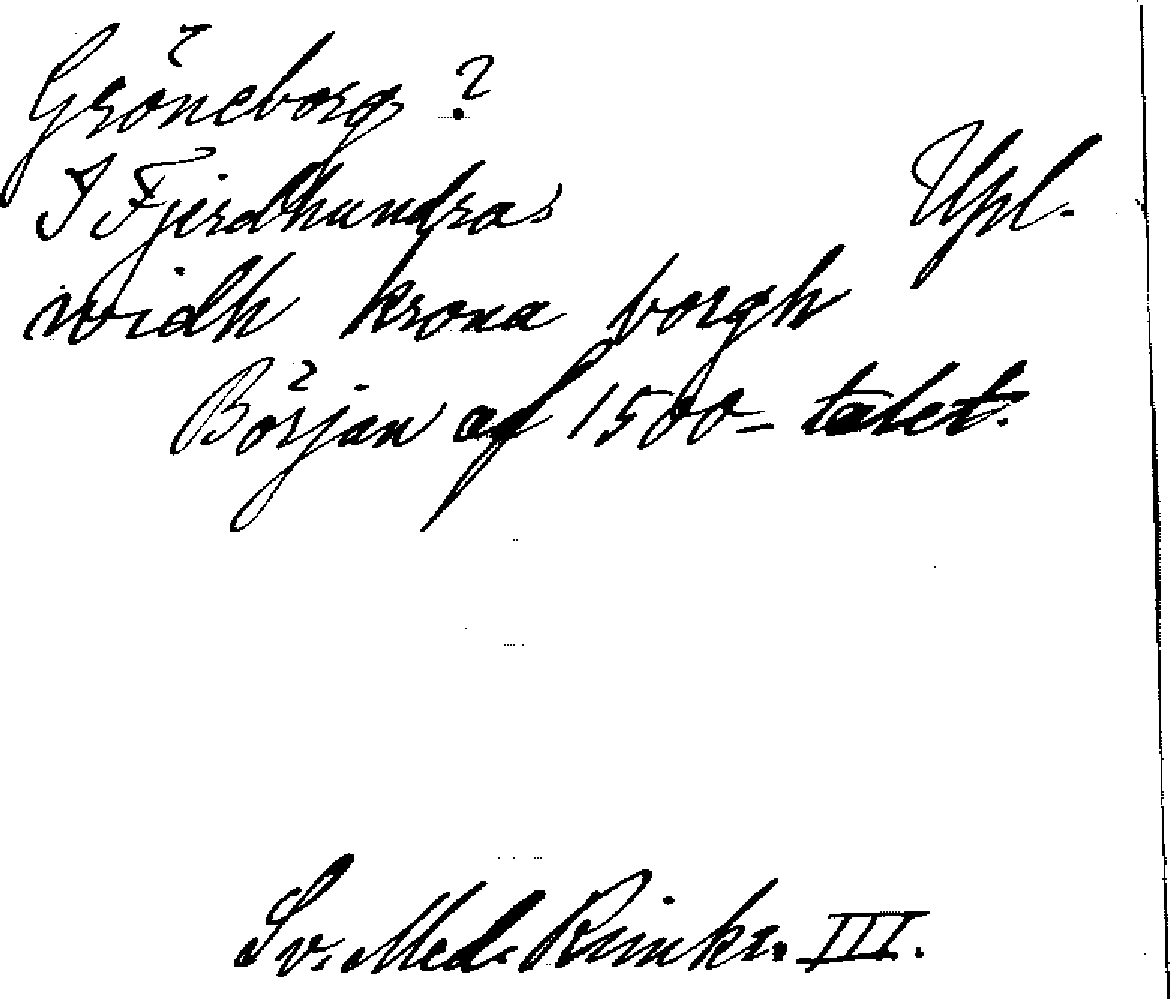 Gröneborg?
I Fjerdhundra Upl.
widh krona borgh
Början af 1500-talet.
Sv. Med. Rimkr. III.